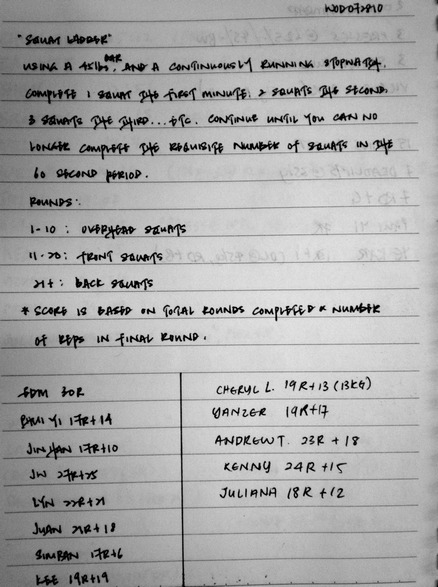 WOD 072810
"SQUAT LADDER"
USING A 45lbs BAR, AND A CONTINUOUSLY RUNNING STOPWATCH.
COMPLETE 1 SQUAT THE FIRST MINUTE, 2 SQUATS THE SECOND,
3 SQUATS THE THIRD... ETC. CONTINUE UNTIL YOU CAN NO
LONGER COMPLETE THE REQUISITE NUMBER OF SQUATS IN THE
60 SECOND PERIOD.
ROUNDS:
1-10: OVERHEAD SQUATS
11-20: FRONT SQUATS
21+: BACK SQUATS
* SCORE IS BASED ON TOTAL ROUNDS COMPLETED & NUMBER
OF REPS IN FINAL ROUND.
EDM 30R
BHUI YI 17R+14
JINHAN 17R+10
JW 27R+25
LYN 22R+21
JUAN 21R+18
SIMBAN 17R+6
KEE 19R+19
CHERYL L. 19R+13 (13KG)
YANZER 19R+17
ANDREW T. 23R+18
KENNY 24R+15
JULIANA 18R+12